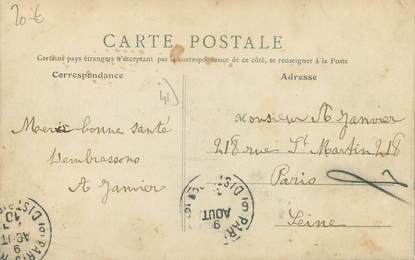 20 €
CARTE POSTALE
Certains pays étrangers n'acceptant pas la correspondance de ce côté, se renseigner à la Poste
Correspondance
Adresse
41)
Merci bonne santé
Vembrassons
A Janvier
Monsieur A Janvier
218 rues St Martin 218
Paris
Seine
PARIS
DISTR
9
AOUT
10
PARIS
DISTR
9
AOUT